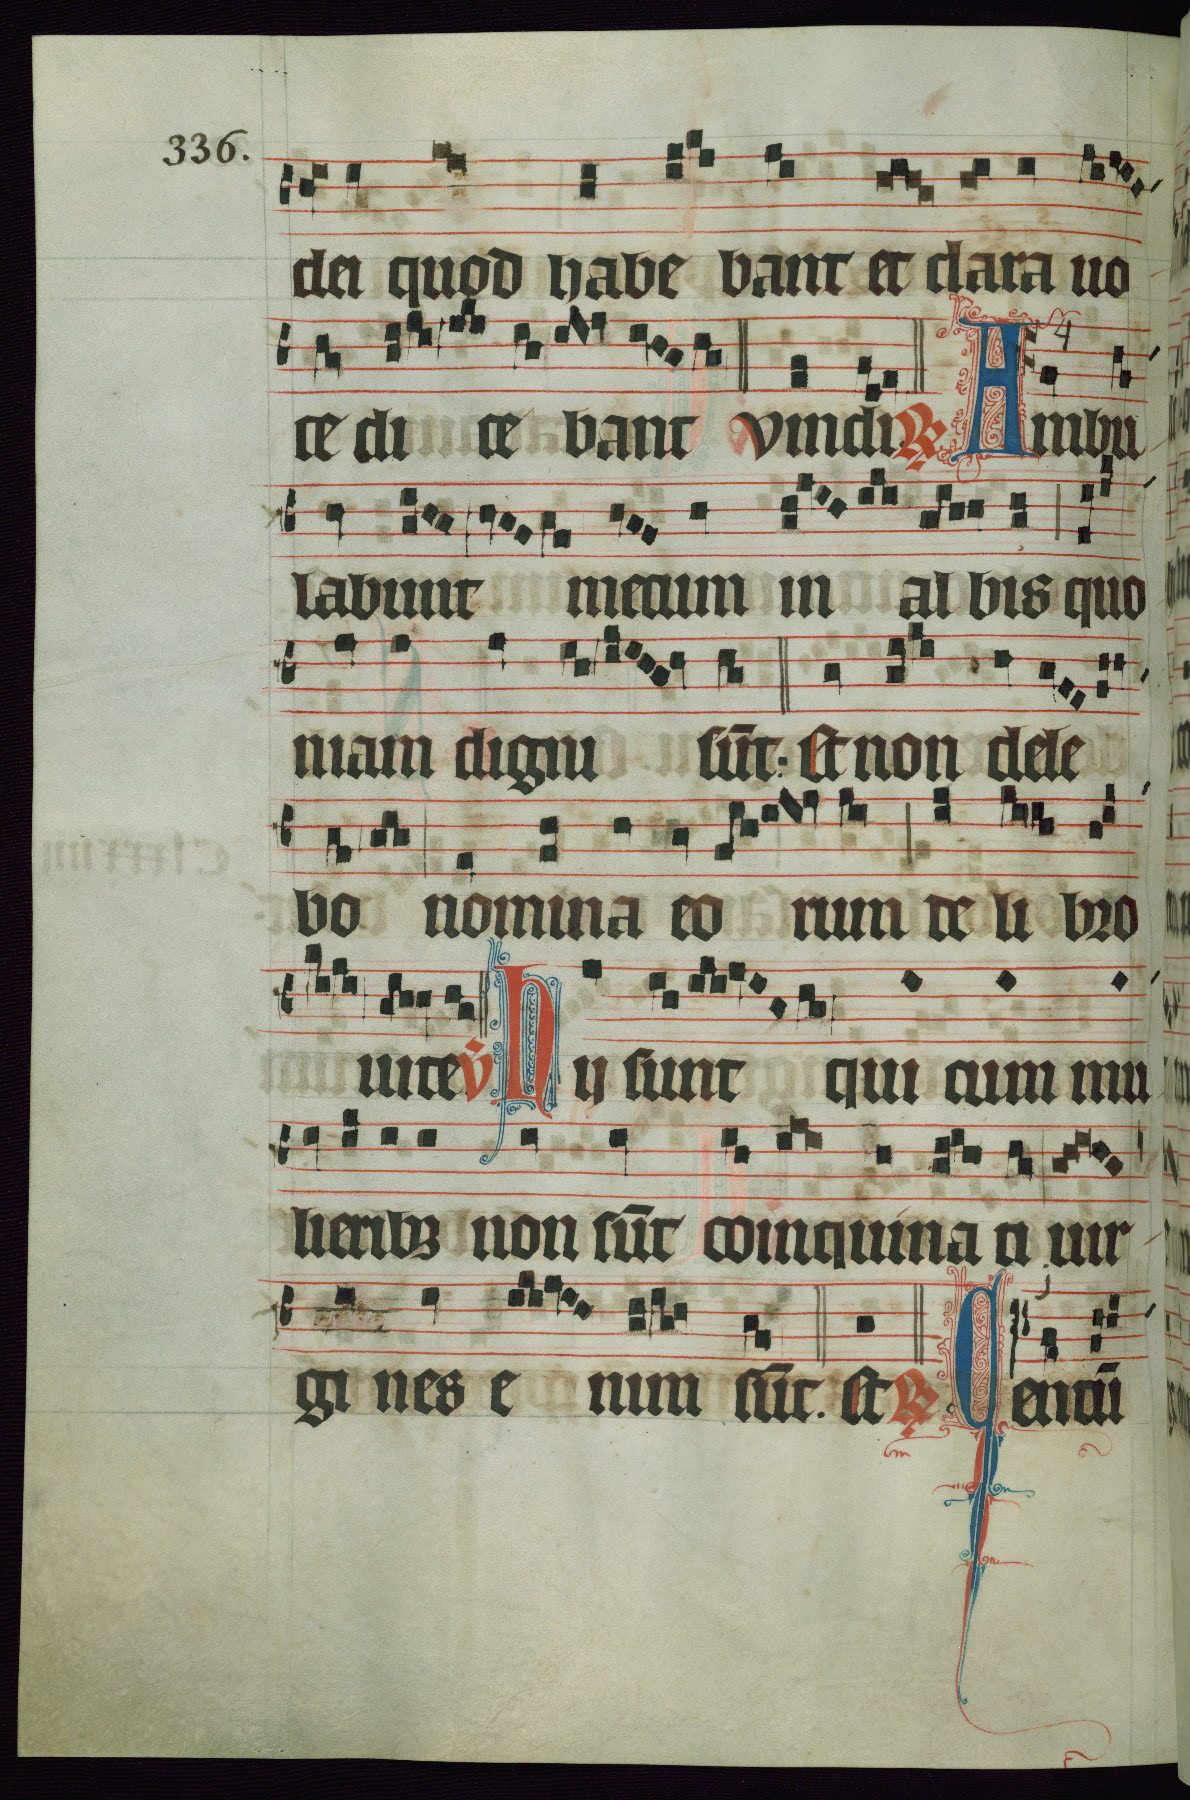 336.
dei quod habe bant et clara uo
4
ce di ce bant vindi. R Ambu
labunt mecum in al bis quo
niam digni sūt: Et non dele
bo nomina eo rum te li bro
uite v̄ Hij sunt qui cum mu
lieribꝫ non sūt coinquina ti uir
gi nes e nim sūt. Et R. Centū